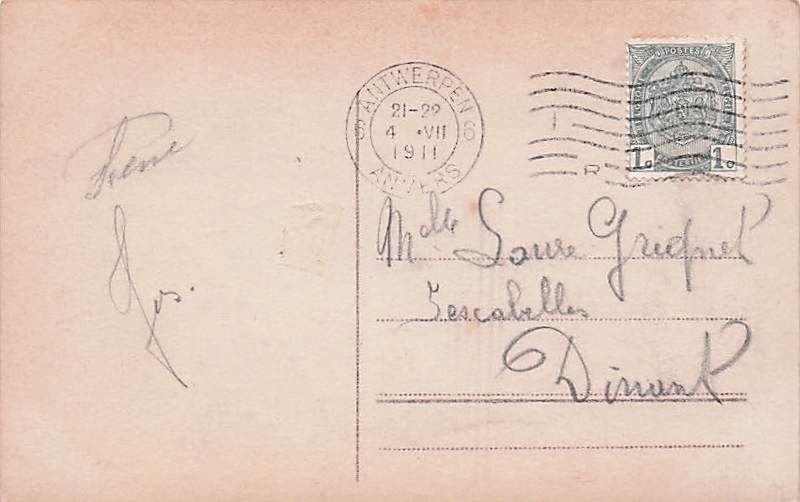 ANTWERPEN
6 6
21-22
4 VII
1911
ANVERS
R
POSTES
1c 1c
Jos.
Melle Laure Grignet
Dinant